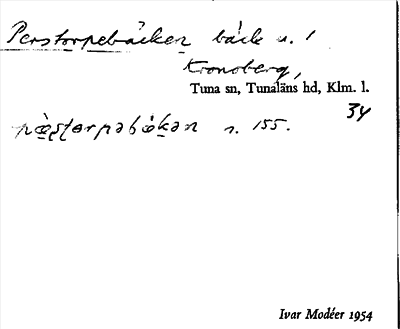 Perstorpebäcken bäck n. 1
Kronoberg,
Tuna sn, Tunaläns hd, Klm. l.
34
n. 155.
Ivar Modéer 1954